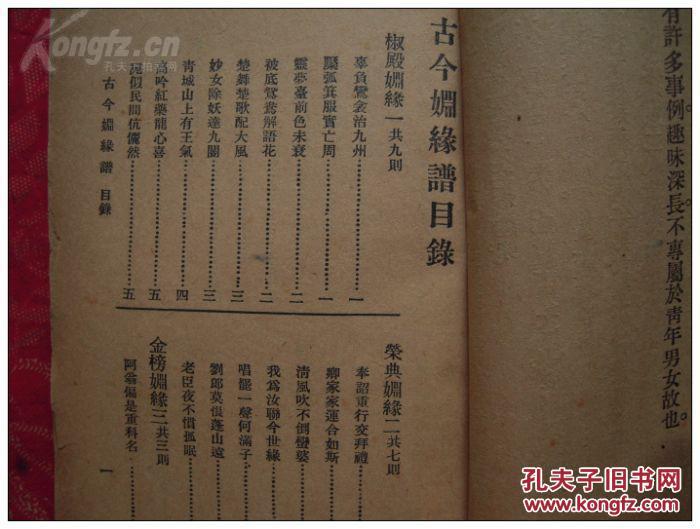 有許多事例趣味深長。不專屬於靑年男女故也。
古今婣緣譜目錄
椒殿婣緣一共九則
辜負鸞衾治九州……一
檿弧箕服實亡周……一
靈夢臺前色未衰……二
被底鴛鴦解語花……二
楚舞楚歌配大風……三
妙女除妖達九閽……三
靑城山上有王氣……四
高吟紅藥龍心喜……五
民間伉儷然……五
榮典婣緣二共七則
奉詔重行交拜禮
鄉家家運合如斯
淸風吹不倒蠻婆
我爲汝聯今世緣
唱罷一聲何滿子
劉郎莫恨蓬山遠
老臣夜不慣孤眠
金榜婣緣三共三則
阿翁偏是重科名
古今婣緣譜 目錄
一
Kongfz.com
孔夫子旧书网
孔夫子旧书网
KONGFZ.COM